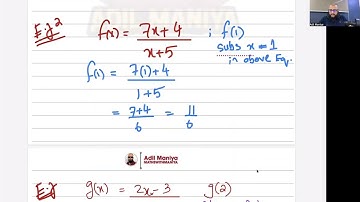 E.g 2 f(x) = 7x+4 / x+5 ; f(1)
subs x = 1
in above Eq.
f(1) = 7(1)+4 / 1+5
= 7+4 / 6 = 11 / 6
Adil Maniya
MATHSWITHMANIYA
E.g g(x) = 2x-3 g(2)